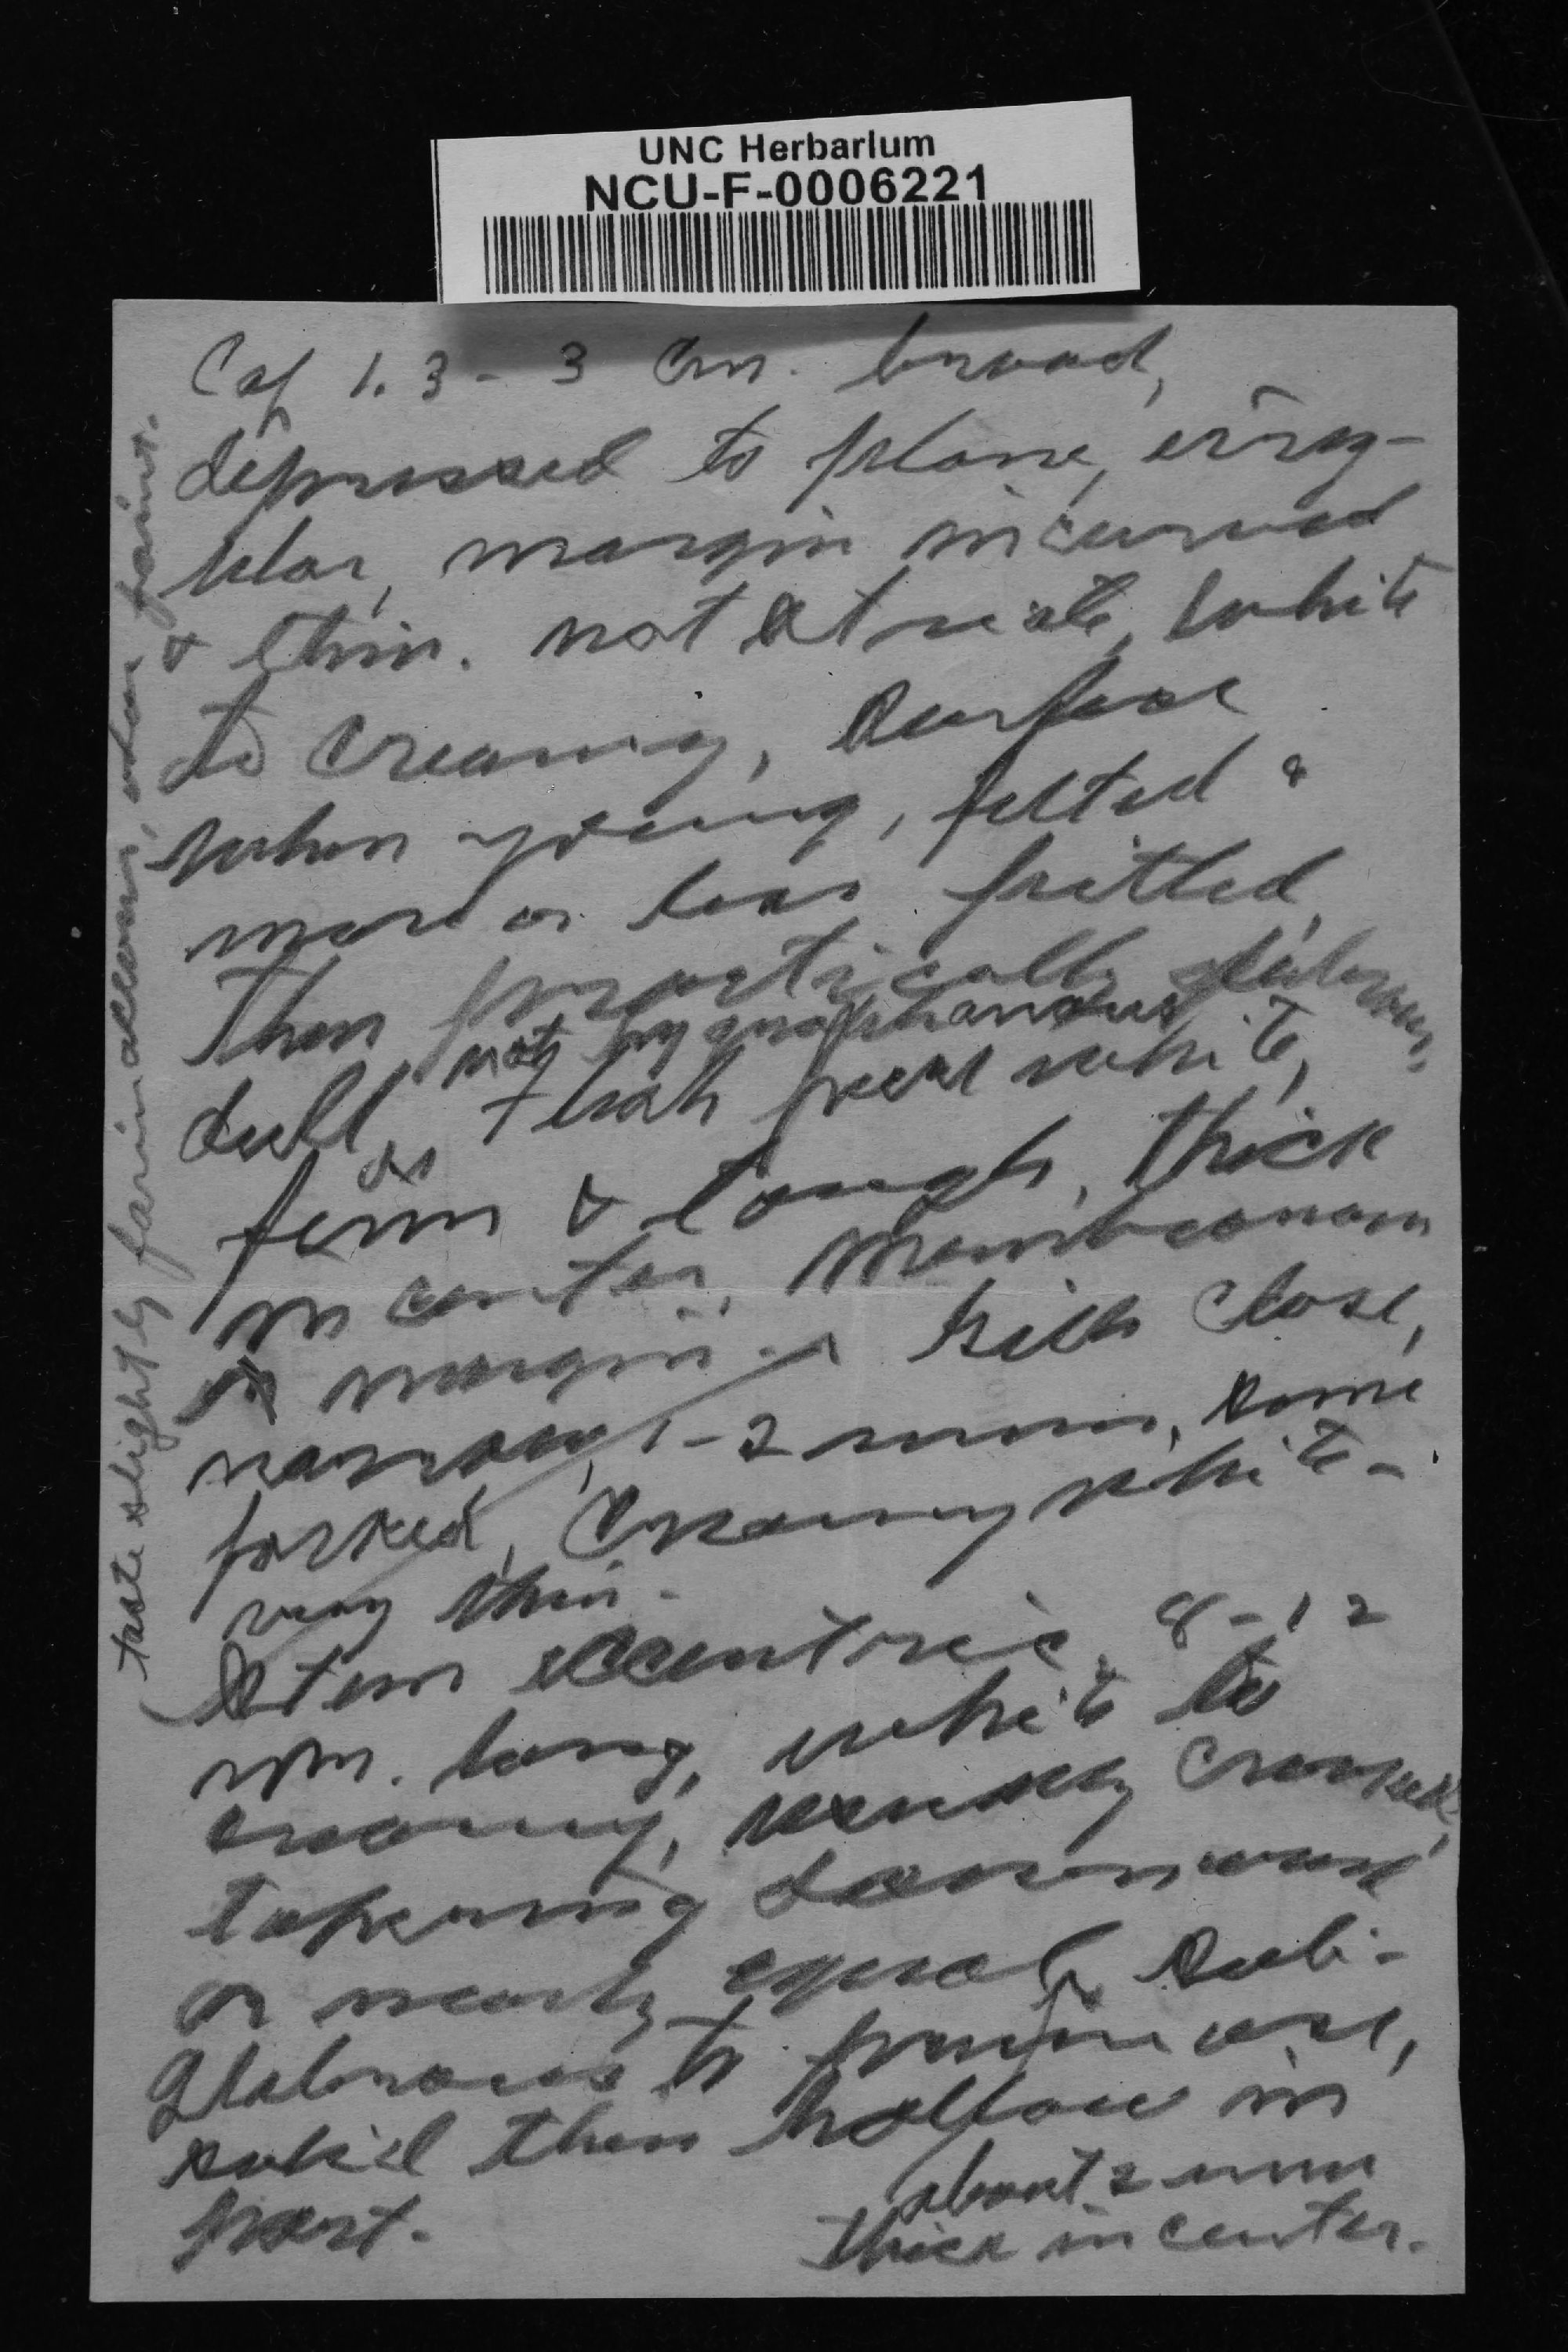 UNC Herbarium
NCU-F-0006221
Cap 1.3 - 3 Cm. broad,
depressed to plane, irreg-
ular, margin incurved
& thin. not striate, white
to creamy, surface
when young, felted &
more or less pitted,
then practically glabrous,
not hygrophanous
dull, flesh pure white,
firm & tough, thick
in center, membranous
on margin. Gills close,
narrow, 1-2 mm, some
forked, Creamy white-
very thin.
Stem eccentric, 8-12
mm. long, white to
creamy, usually crooked,
tapering downward
or nearly equal, sub-
glabrous to pruinose,
solid then hollow in
part.
about 2 mm
thick in center.
taste slightly farinaceous, odor faint.